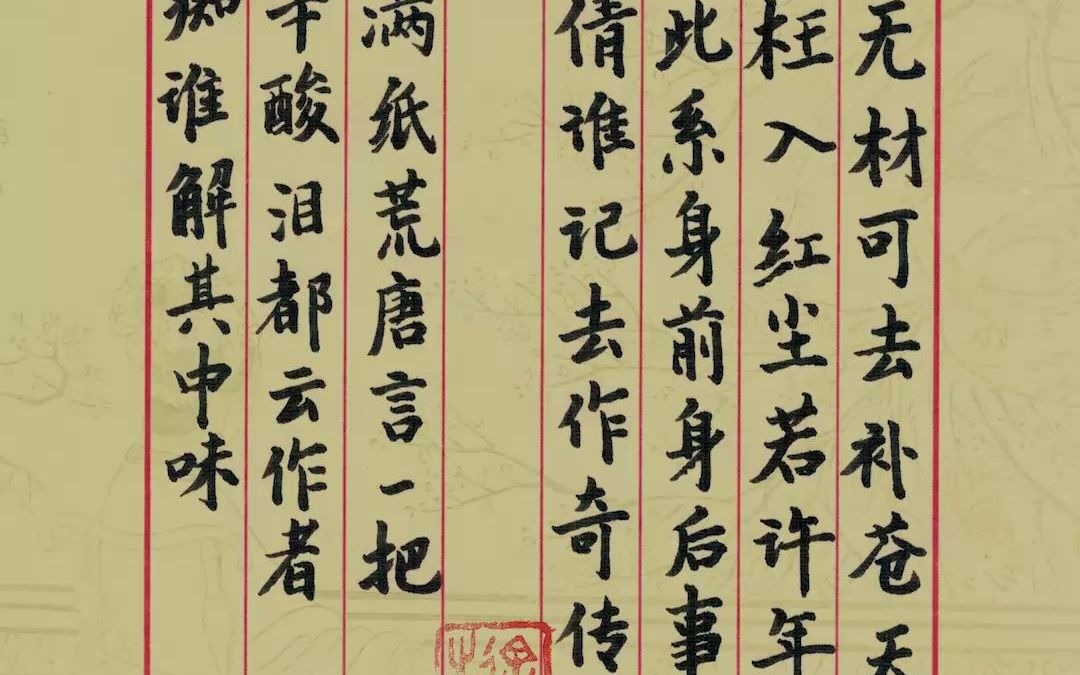 无材可去补苍天
枉入红尘若许年
此系身前身后事
倩谁记去作奇传
满纸荒唐言一把
辛酸泪都云作者
痴谁解其中味